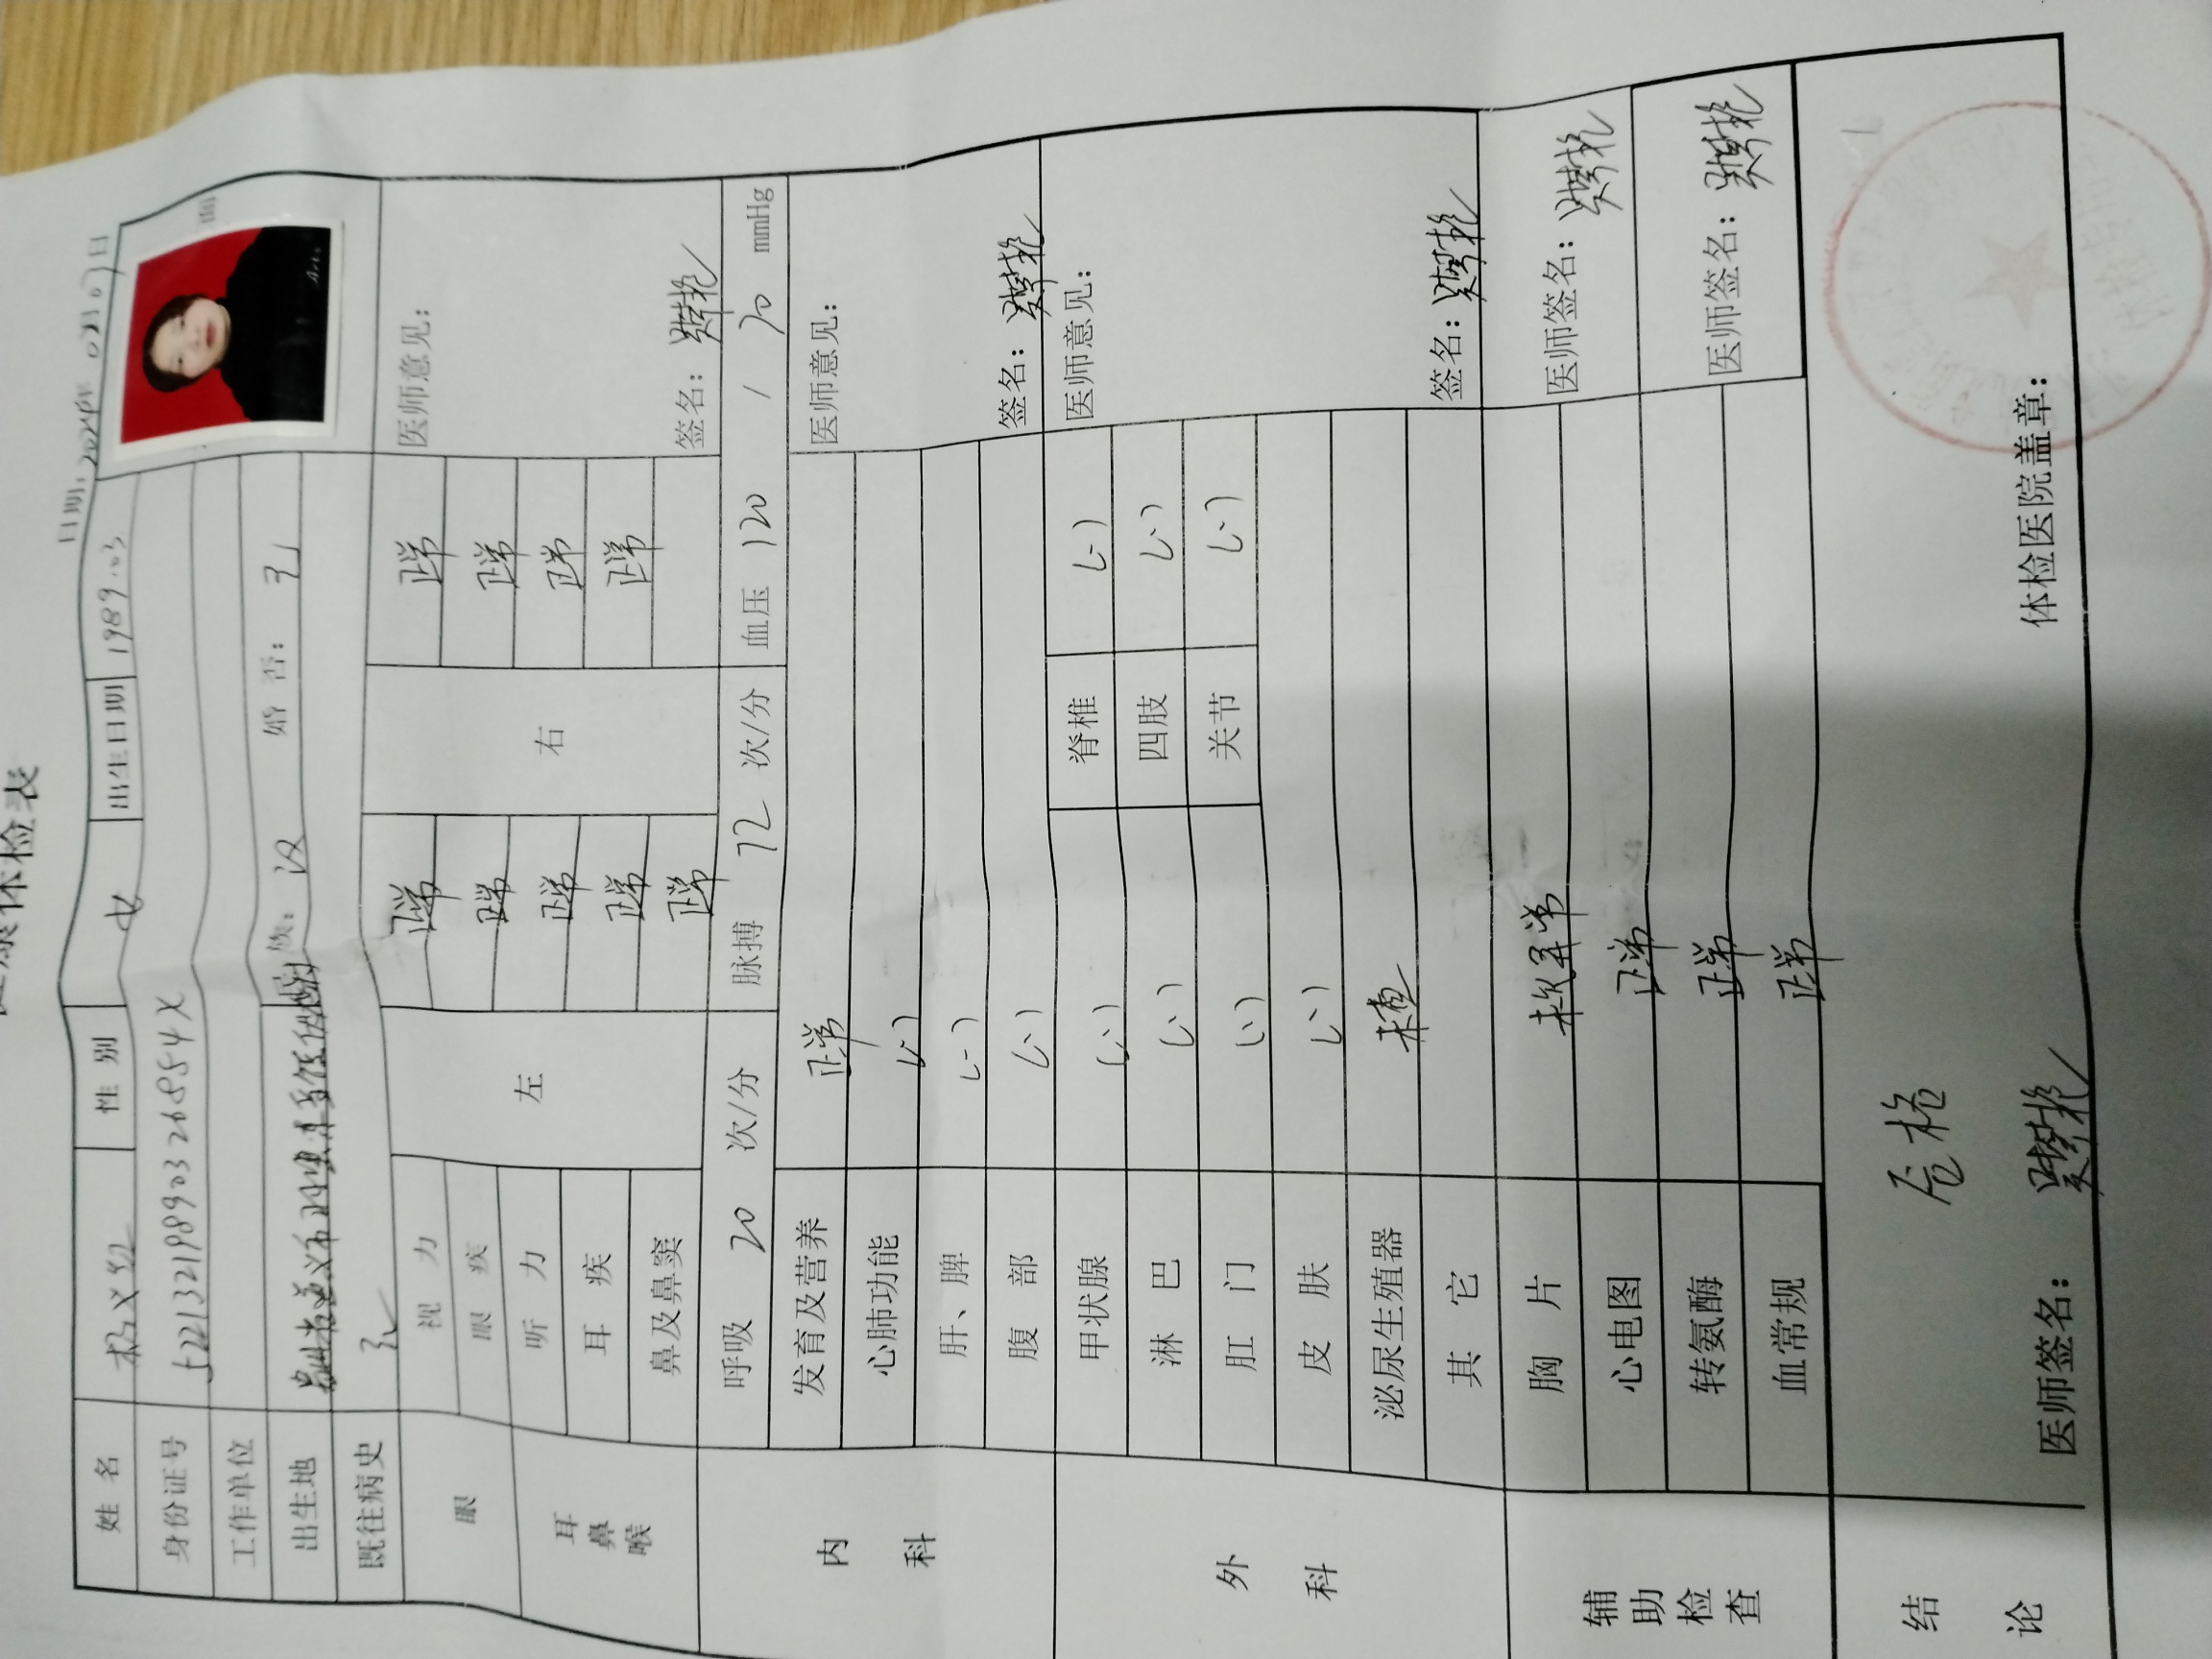 康体检表
日期: 2024年03月07日
姓 名 性 别 女 出生日期 1989.03
身份证号 52213219890326854X
工作单位
出生地 族: 汉 婚 否:
既往病史 无
眼 视 力 左 正常 右 正常 医师意见:
眼 疾 正常 正常
耳鼻喉 听 力 正常 正常
耳 疾 正常 正常
鼻及鼻窦 正常 签名:
呼吸 20 次/分 脉搏 72 次/分 血压 120 / 70 mmHg
内科 发育及营养 正常 医师意见:
心肺功能 (-)
肝、脾 (-)
腹 部 (-) 签名:
外科 甲状腺 (-) 脊椎 (-) 医师意见:
淋 巴 (-) 四肢 (-)
肛 门 (-) 关节 (-)
皮 肤 (-)
泌尿生殖器 未查
其 它 签名:
辅助检查 胸 片 未见异常 医师签名:
心电图 正常
转氨酶 正常 医师签名:
血常规 正常
结论 合格
医师签名: 体检医院盖章: